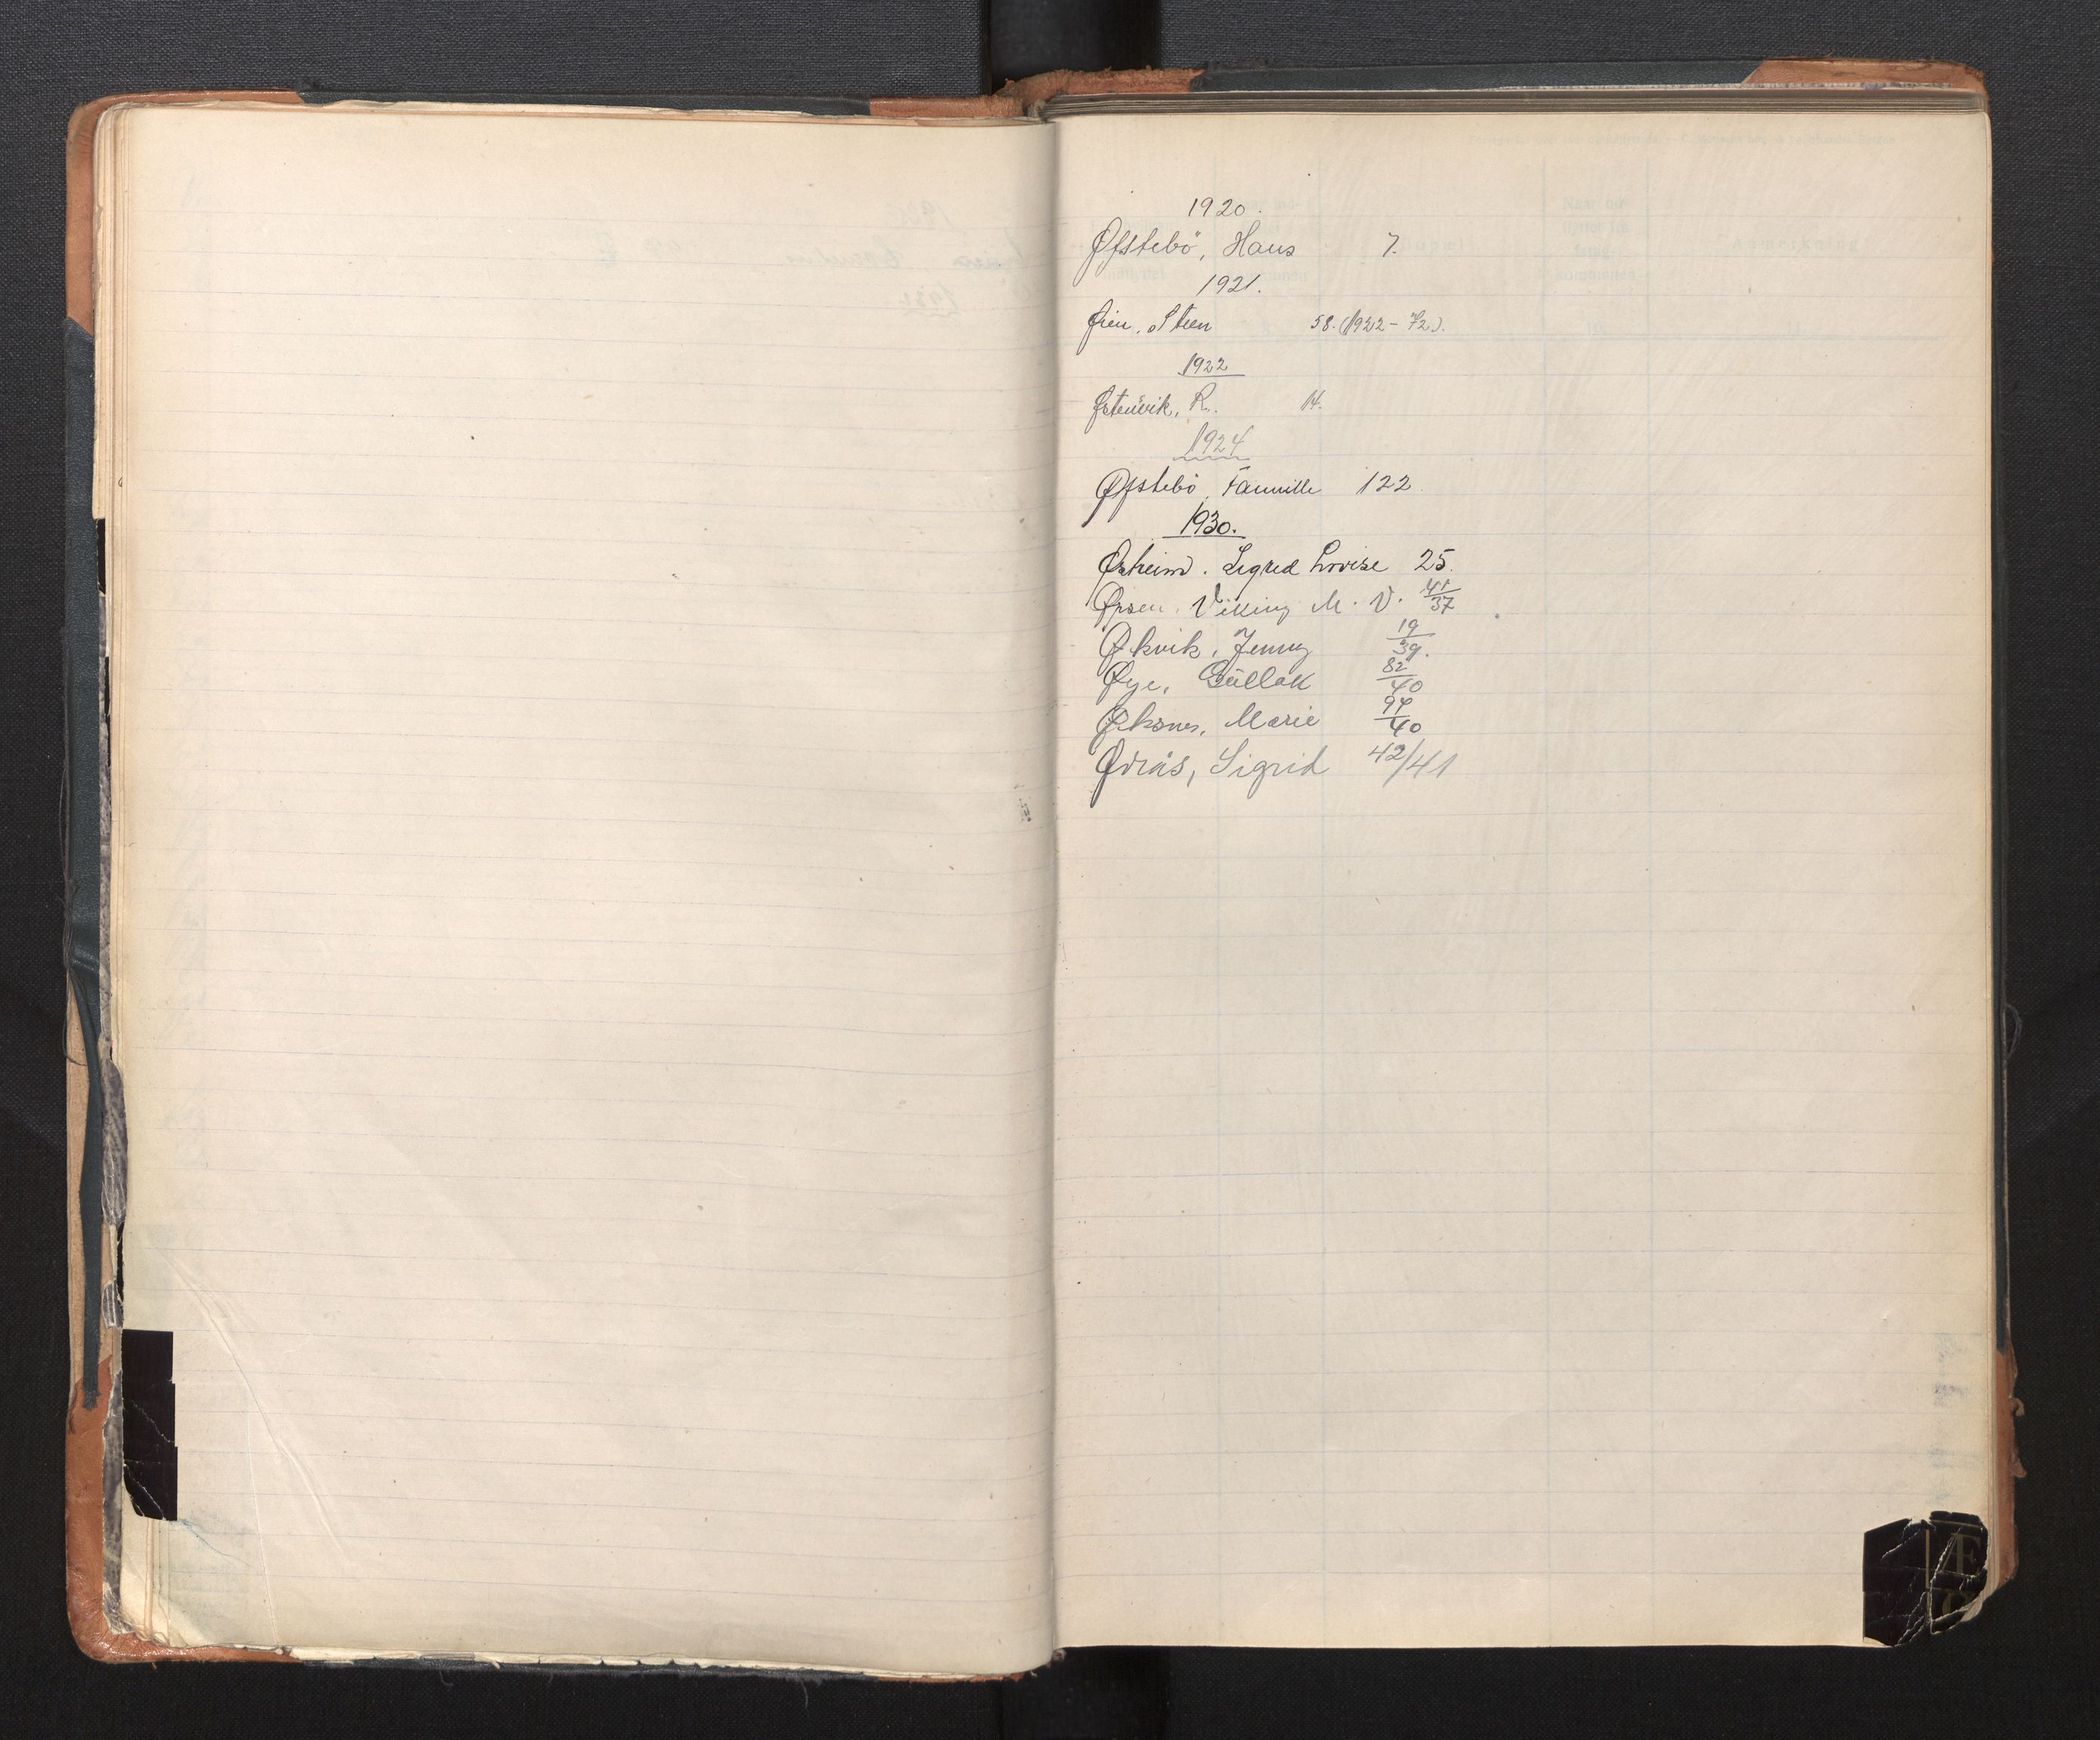 1920.
Øfstebö, Hans 7.
1921.
Øien, Steen 58. (1922 - 72).
1922
Østenvik, R. 14.
1924
Øfstebö, Familile 122
1930.
Øxheim. Sigrid Lovise 25.
Øpsen, Viking M. V. 41/37
Økvik, Jenny 19/39.
Øye, Gúllak 82/40
Øksnes, Marie 94/40
Øvrås, Sigrid 42/41
Æ